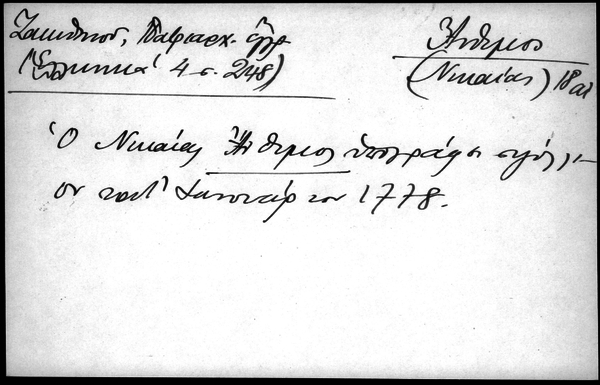 Ζακυθηνοῦ, Πατριαρχ. ἔγγρ
(Ἑλληνικά 4 σ. 248)
Ἄνθιμος
(Νικαίας) 18 αἰ
Ὁ Νικαίας Ἄνθιμος ὑπογράφει
τὸν Ἰανουάριον 1778.